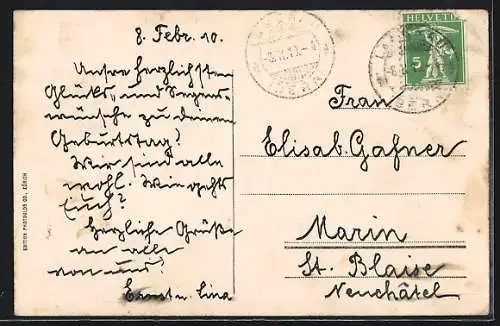 8. Febr. 10.
Unsre herzlichsten
Glücks, und Segens-
wünsche zu deinem
Geburtstag!
Wir sind alle
wohl. Wie gehts
Euch?
Herzliche Grüße
an alle
von uns!
Ernst u. Lina
HELVETIA
5
BERN
Frau
Elisab. Gafner
Marin
St. Blaise
Neuchâtel